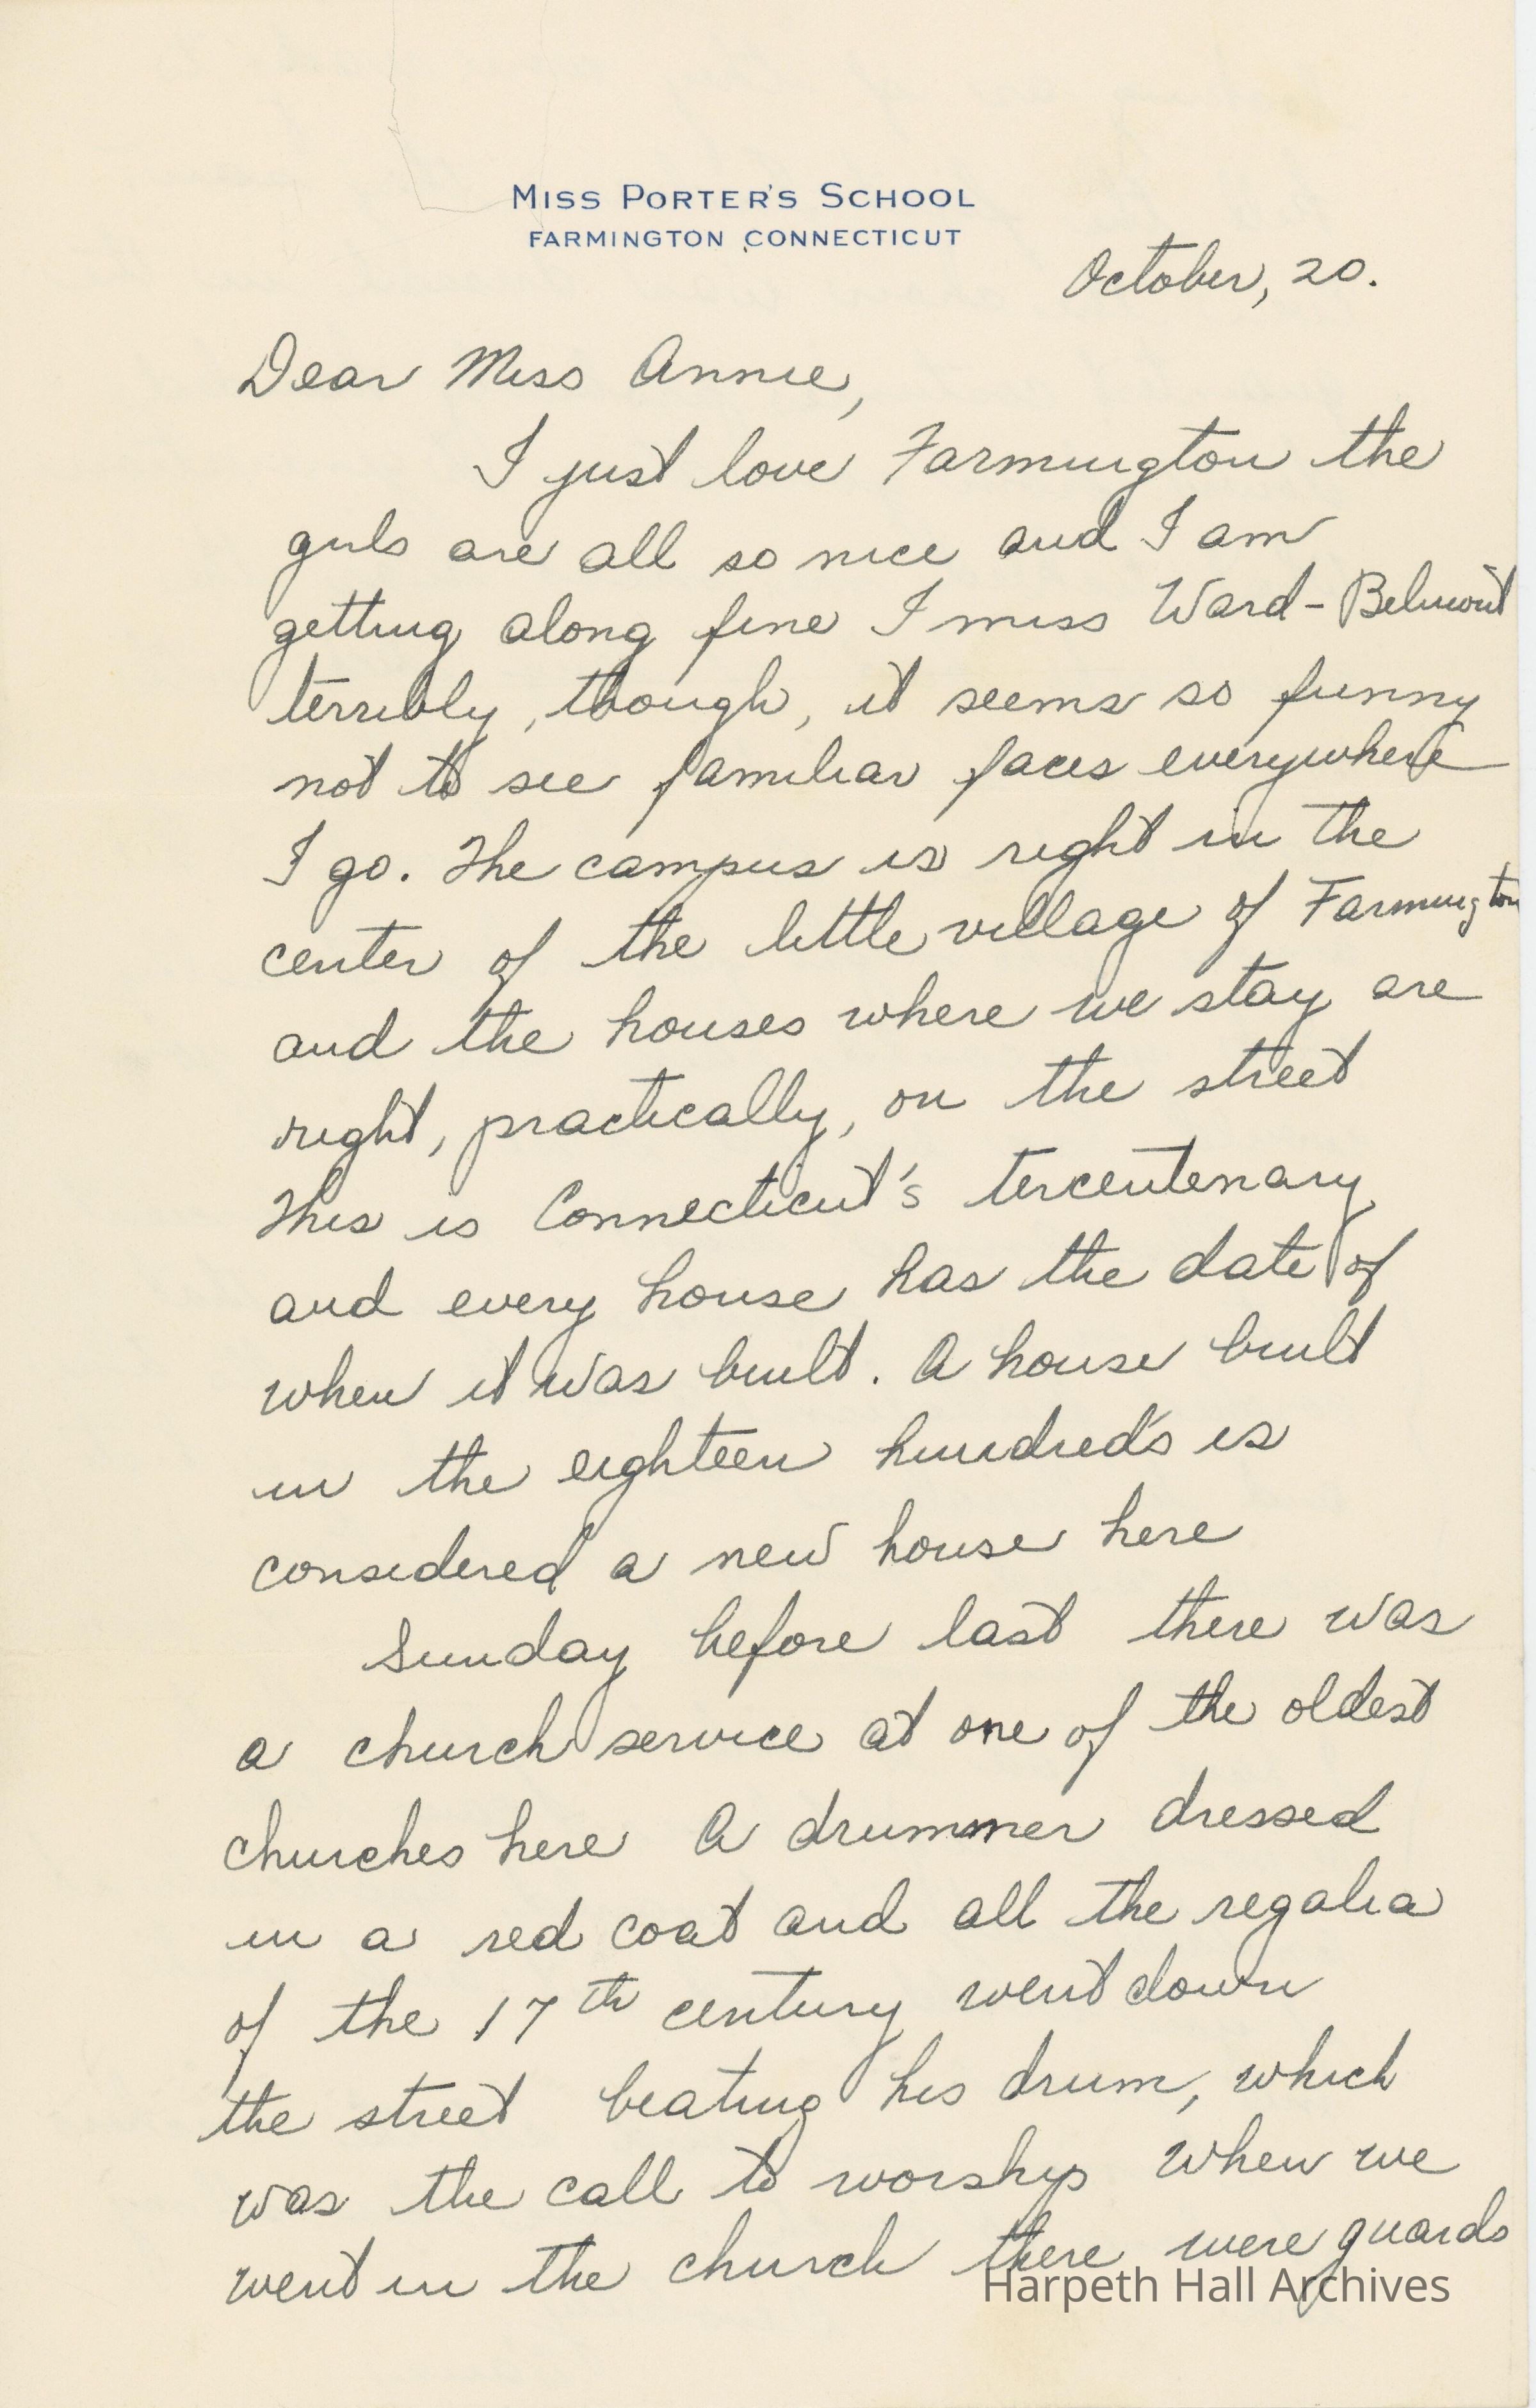 MISS PORTER'S SCHOOL
FARMINGTON CONNECTICUT
October, 20.
Dear Miss Annie,
I just love Farmington the
girls are all so nice and I am
getting along fine I miss Ward-Belmont
terribly, though, it seems so funny
not to see familiar faces everywhere
I go. The campus is right in the
center of the little village of Farmington
and the houses where we stay are
right, practically, on the street
This is Connecticut's tercentenary
and every house has the date of
when it was built. A house built
in the eighteen hundred's is
considered a new house here
Sunday before last there was
a church service at one of the oldest
churches here A drummer dressed
in a red coat and all the regalia
of the 17th century went down
the street beating his drum, which
was the call to worship when we
went in the church there were guards
Harpeth Hall Archives